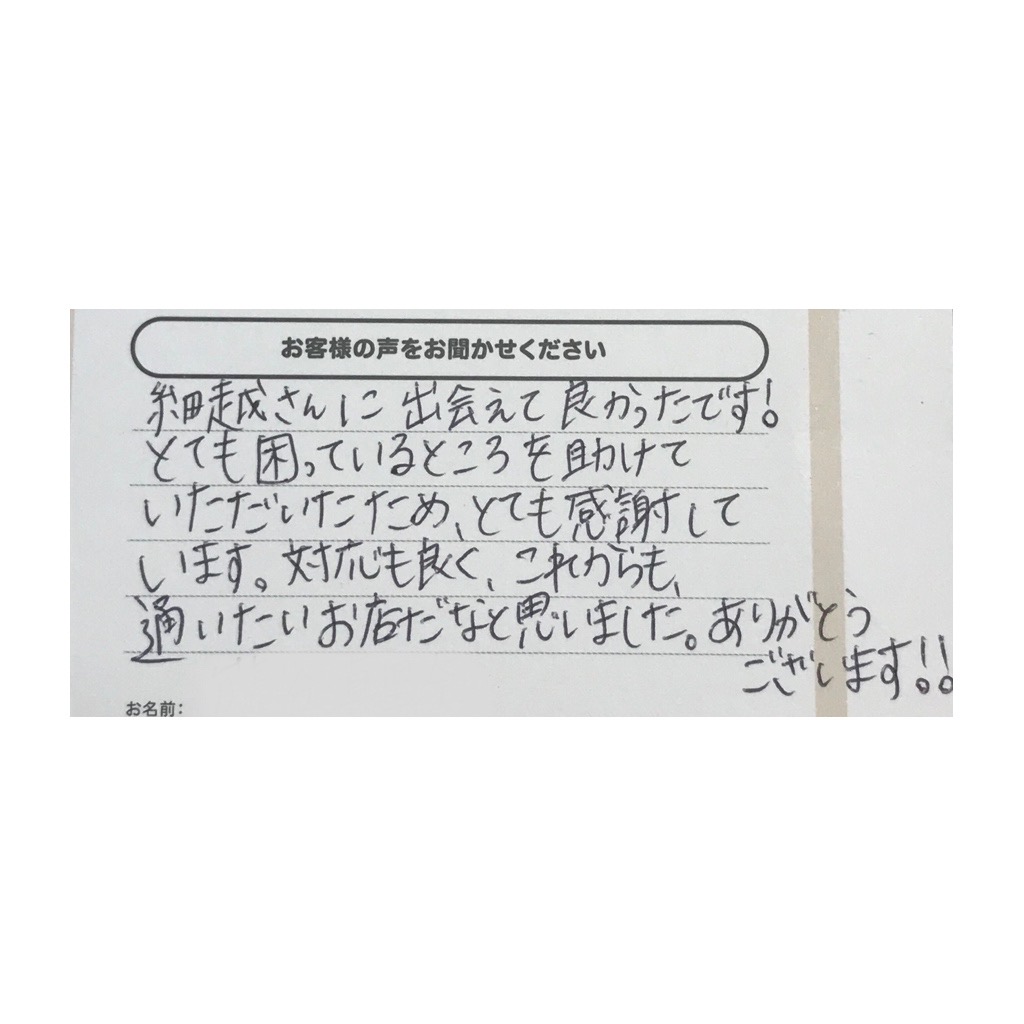 お客様の声をお聞かせください
細越さんに出会えて良かったです!
とても困っているところを助けて
いただいたため、とても感謝して
います。対応も良く、これからも、
通いたいお店だなと思いました。ありがとう
ございます!!
お名前: